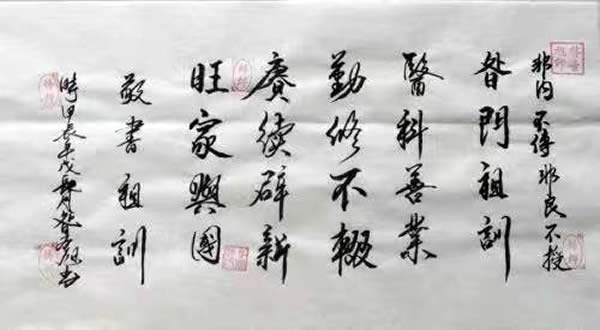 非内不傳非良不授
昝門祖訓
醫科善業
勤修不輟
賡續辟新
旺家興國
敬書祖訓
時甲辰年戊月昝書